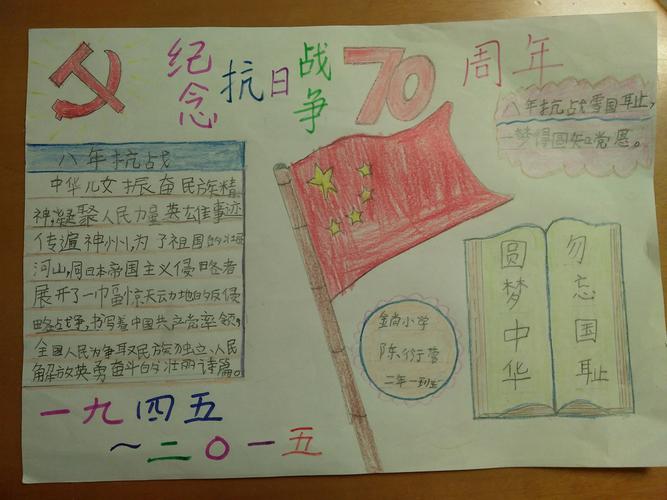 纪念抗日战争70周年
八年抗战雪国耻,
一梦得圆知党恩。
八年抗战
中华儿女振奋民族精
神,凝聚人民力量英雄事迹
传遍神州,为了祖国的壮丽
河山,同日本帝国主义侵略者
展开了一幅惊天动地的反侵
略战争,书写着中国共产党率领,
全国人民为争取民族独立、人民
解放英勇奋斗的壮丽诗篇。
圆梦中华
勿忘国耻
金尚小学
陈衍蓥
二年一班
一九四五
~二〇一五